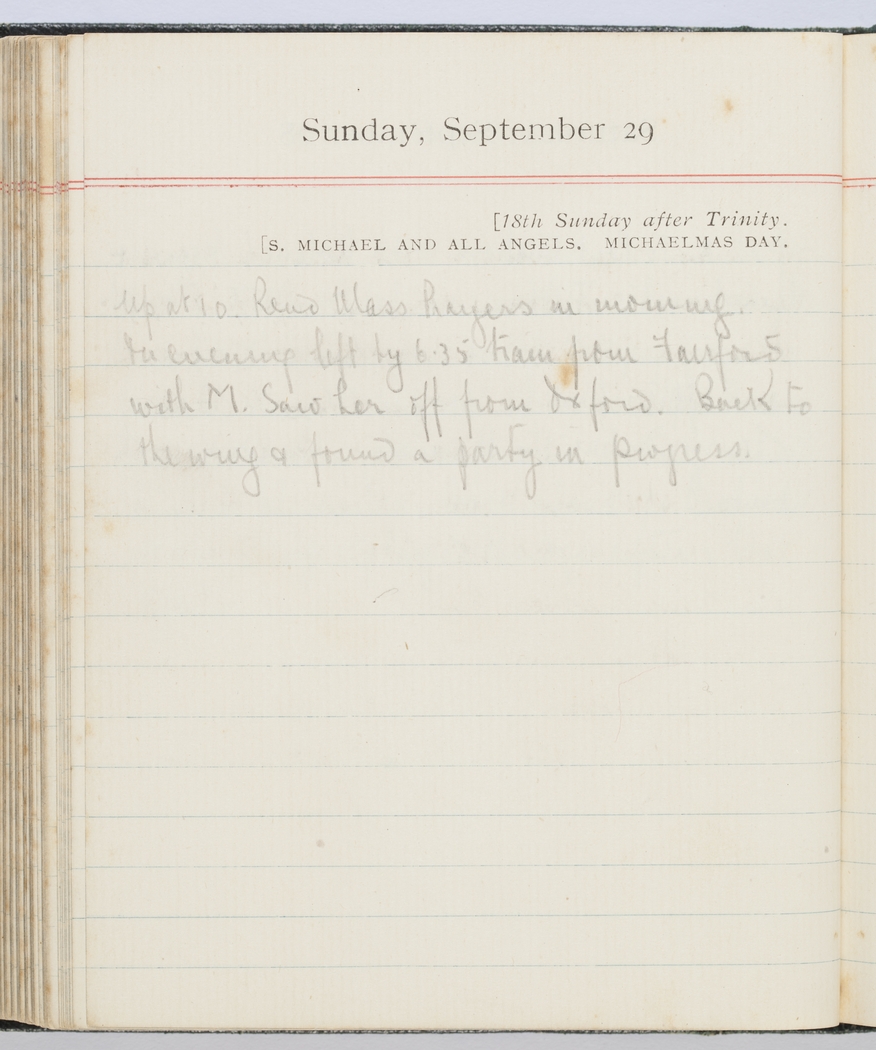 Sunday, September 29
[18th Sunday after Trinity.
[S. MICHAEL AND ALL ANGELS. MICHAELMAS DAY.
Up at 10. Read Mass Prayers in morning.
In evening left by 6.35 train from Fairford
with M. Saw her off from Oxford. Back to
the wing & found a party in progress.